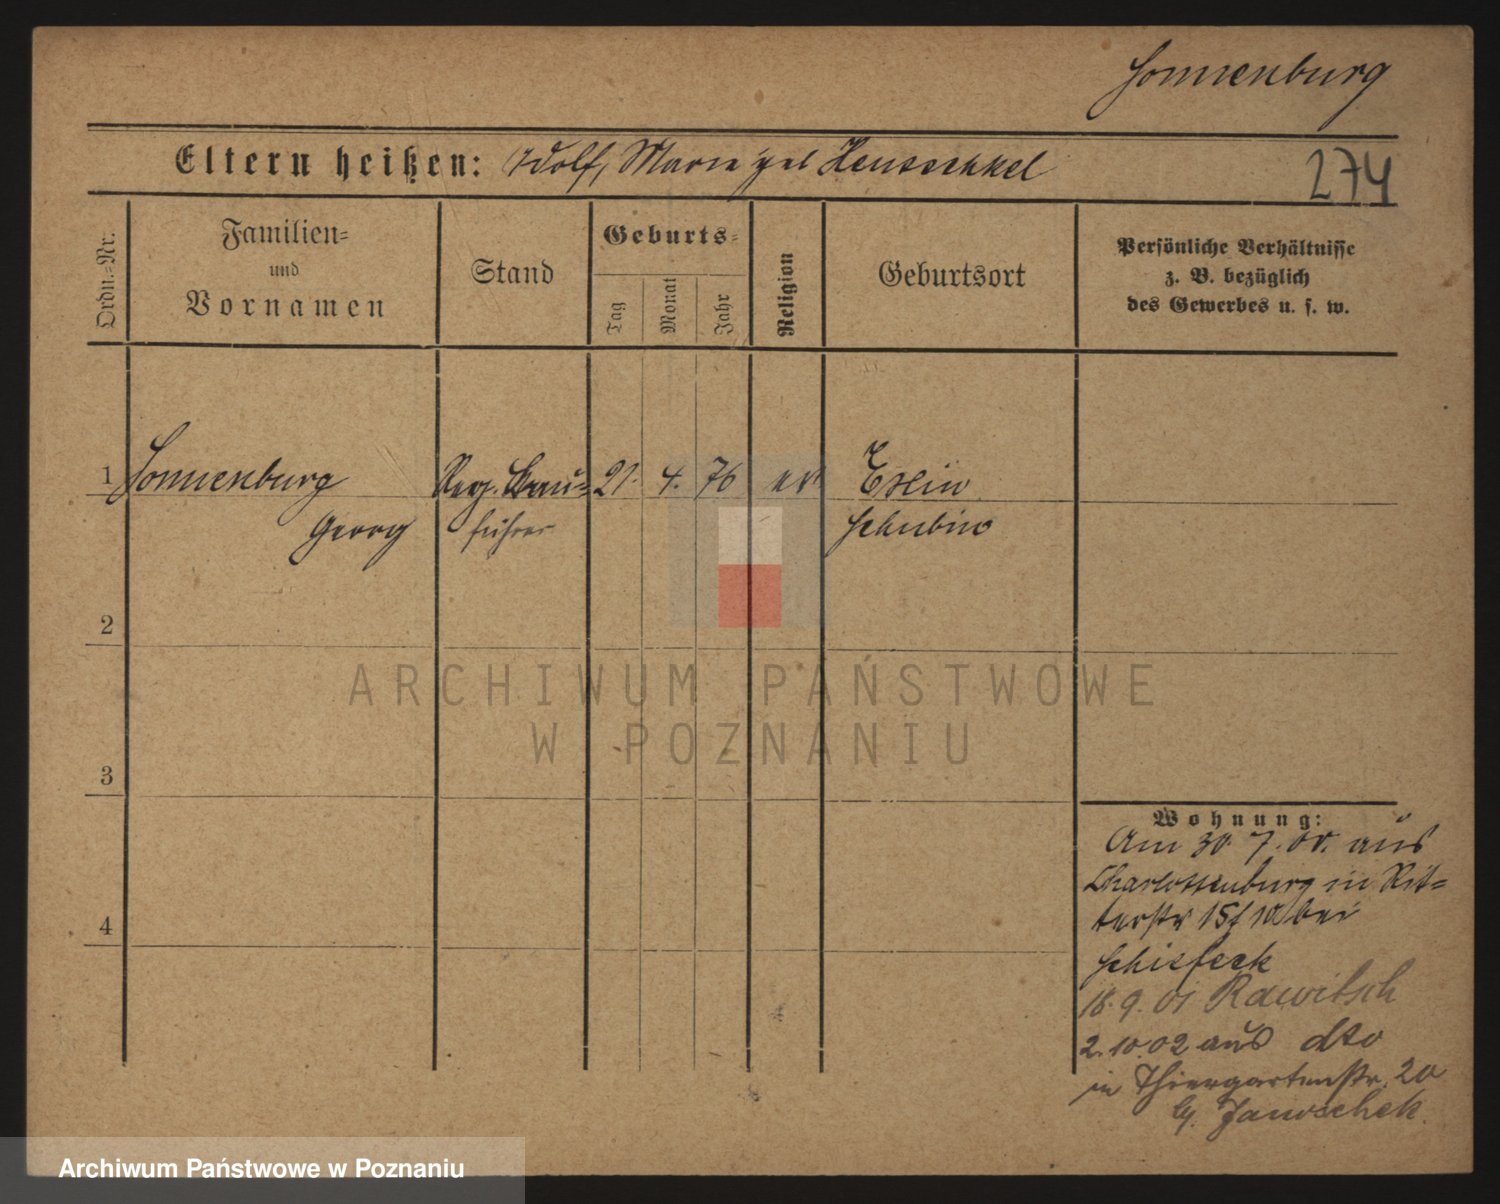 Sonnenburg
Eltern heißen: Adolf, Marie geb
274
Ordn.=Nr.
Familien=
und
Vornamen
Stand
Geburts=
Tag
Monat
Jahr
Religion
Geburtsort
Persönliche Verhältnisse
z. B. bezüglich
des Gewerbes u. s. w.
1
Sonnenburg
Georg
Reg. Bau=
führer
21. 4. 76
ev
Exin
Schubin
2
3
4
Wohnung:
Am 30. 7. 00. aus
Charlottenburg in Rit=
terstr 15/ bei
18. 9. 01 Rawitsch
2. 10. 02 aus dto
in Thiergartenstr. 20
Januschek.
ARCHIWUM PAŃSTWOWE
W POZNANIU
Archiwum Państwowe w Poznaniu